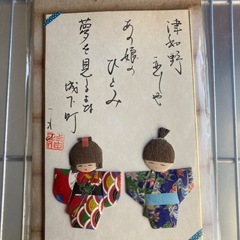 津和野
恋しや
あの娘の
ひとみ
夢を見る
城下町